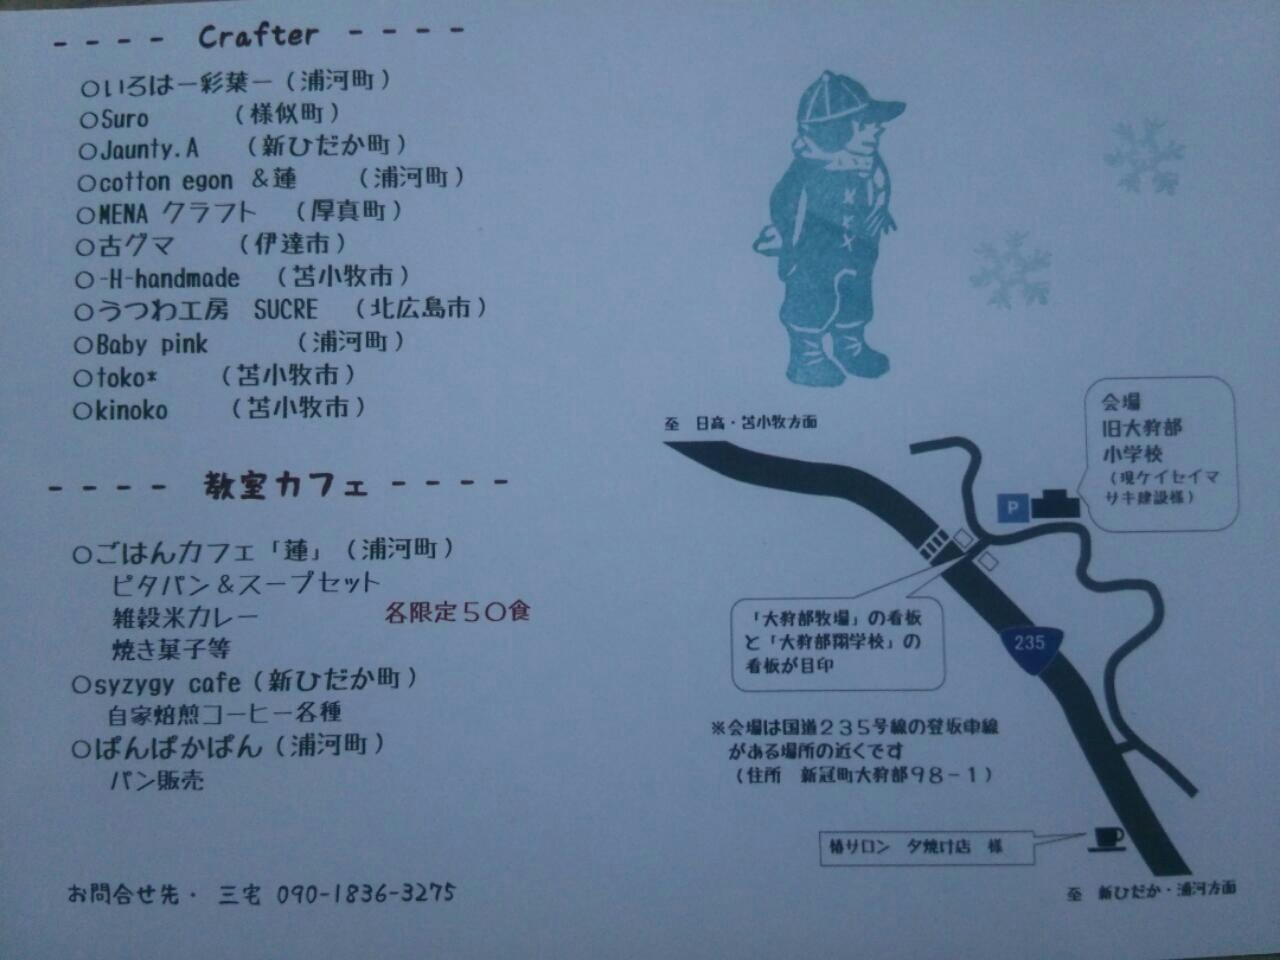 ---- Crafter ----
○いろはー彩葉ー（浦河町）
○Suro （様似町）
○Jaunty.A （新ひだか町）
○cotton egon ＆蓮 （浦河町）
○MENA クラフト （厚真町）
○古グマ （伊達市）
○-H-handmade （苫小牧市）
○うつわ工房 SUCRE （北広島市）
○Baby pink （浦河町）
○toko* （苫小牧市）
○kinoko （苫小牧市）
---- 教室カフェ ----
○ごはんカフェ「蓮」（浦河町）
ピタパン＆スープセット
雑穀米カレー 各限定５０食
焼き菓子等
○syzygy cafe（新ひだか町）
自家焙煎コーヒー各種
○ぱんぱかぱん（浦河町）
パン販売
お問合せ先・ 三宅 090-1836-3275
至 日高・苫小牧方面
会場
旧大狩部
小学校
（現ケイセイマ
サキ建設様）
P
「大狩部牧場」の看板
と「大狩部翔学校」の
看板が目印
235
※会場は国道２３５号線の登坂車線
がある場所の近くです
（住所 新冠町大狩部９８－１）
椿サロン 夕焼け店 様
至 新ひだか・浦河方面